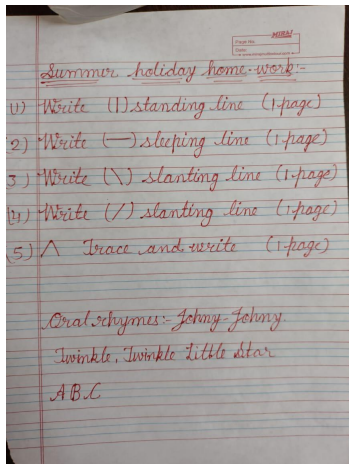 Page No.
Date
Summer holiday home-work:-
(1) Write (|) standing line (1-page)
(2) Write (—) sleeping line (1-page)
3) Write (\) slanting line (1-page)
(4) Write (/) slanting line (1-page)
(5) /\ Trace and write (1-page)
Oral rhymes:- Johny-Johny
Twinkle, Twinkle Little Star
A B C